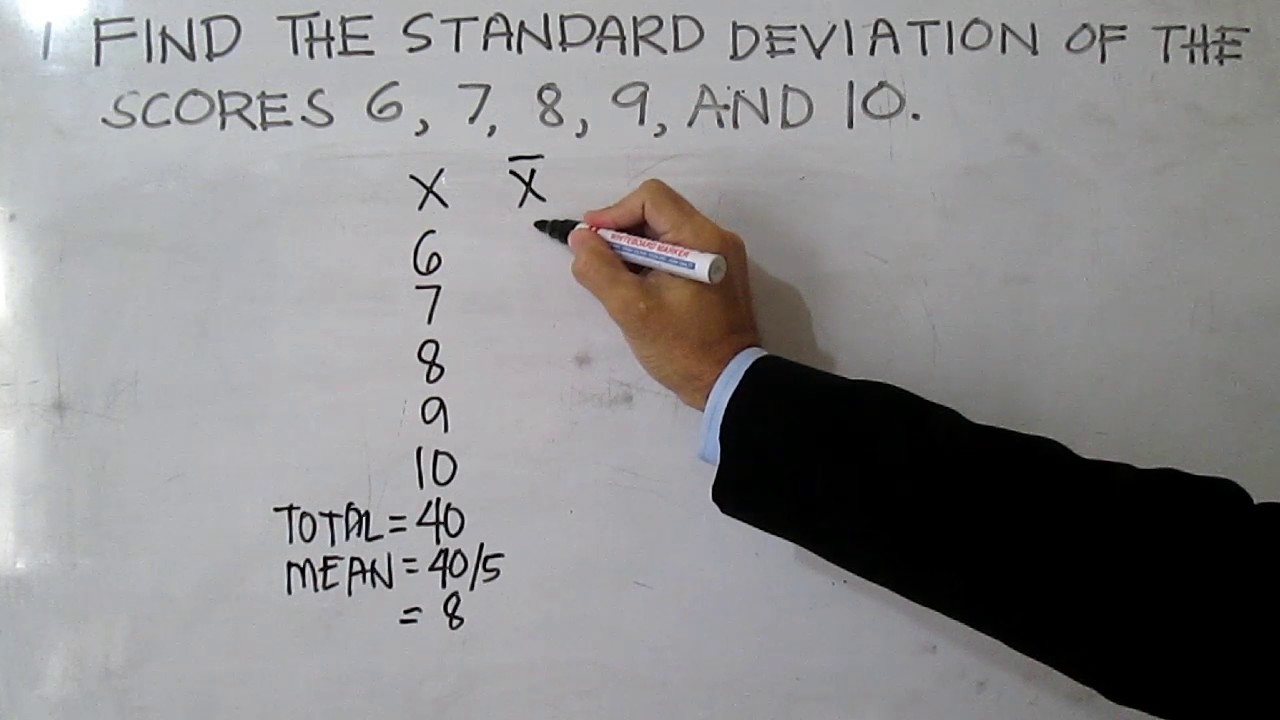 1 FIND THE STANDARD DEVIATION OF THE
SCORES 6, 7, 8, 9, AND 10.
X X̅
6
7
8
9
10
TOTAL = 40
MEAN = 40/5
= 8
WHITEBOARD MARKER